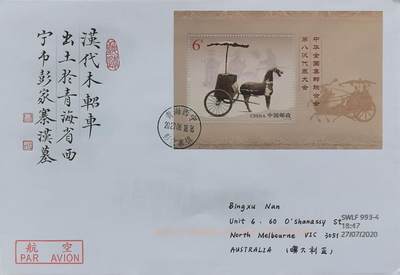 漢代木軺車
出土於青海省西
宁市彭家寨漢墓
6元
CHINA 中国邮政
中华全国集邮联合会
第八次代表大会
Bingxu Nan
Unit 6, 60 O'Shanassy St
North Melbourne VIC 3051
AUSTRALIA (澳大利亚)
SWLF 993-4
18:47
27/07/2020
航 空
PAR AVION